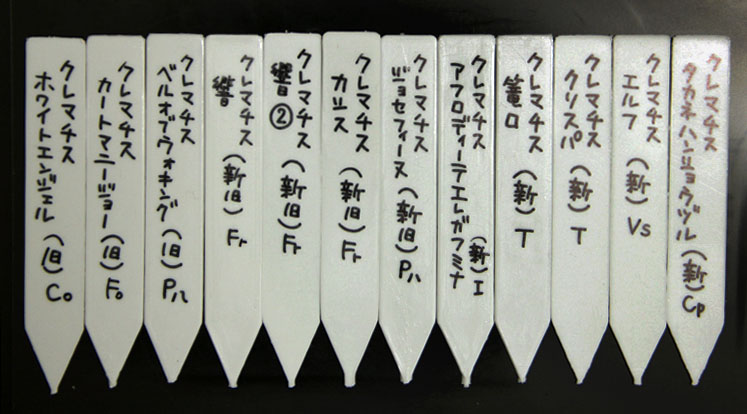 クレマチス
タカネハンショウヅル (新) Cp
クレマチス
エルフ (新) Vs
クレマチス
クリスパ (新) T
クレマチス
篭口 (新) T
クレマチス (新) I
アフロディーテエレガフミナ
クレマチス
ジョセフィーヌ (新旧) Pハ
クレマチス
カシス (新旧) Fr
クレマチス
響② (新旧) Fr
クレマチス
響 (新旧) Fr
クレマチス
ベルオブウォキング (旧) Pハ
クレマチス
カートマニージョー (旧) Fo
クレマチス
ホワイトエンジェル (旧) Co